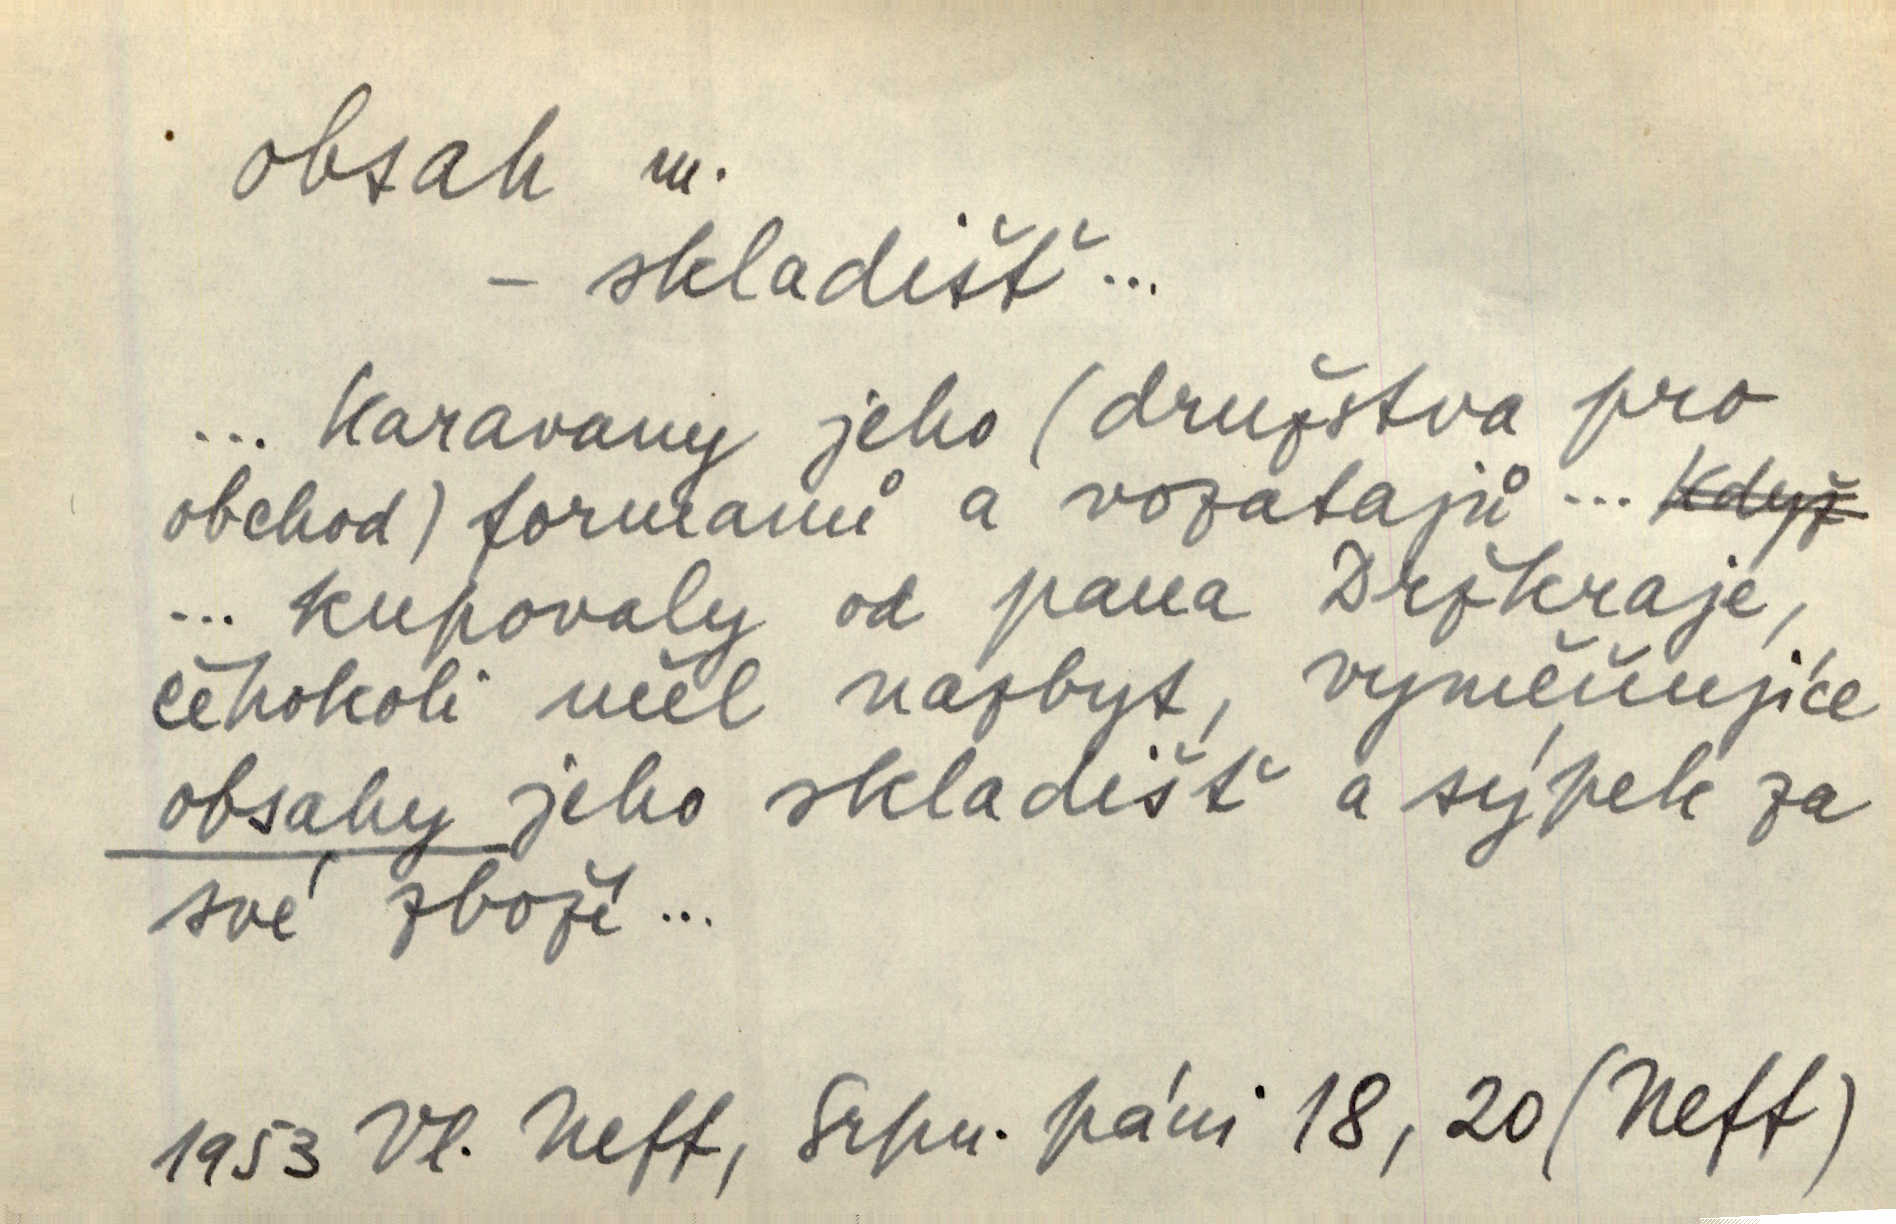 obsah m.
– skladišť...
... Karavany jeho (družstva pro
obchod) formanů a vozatajů ... Když
... kupovaly od pana Držkraje,
čehokoli měl nazbyt, vyměňujíce
obsahy jeho skladišť a sýpek za
své zboží ...
1953 Vl. Neff, Srpn. páni 18, 20 (Neff)